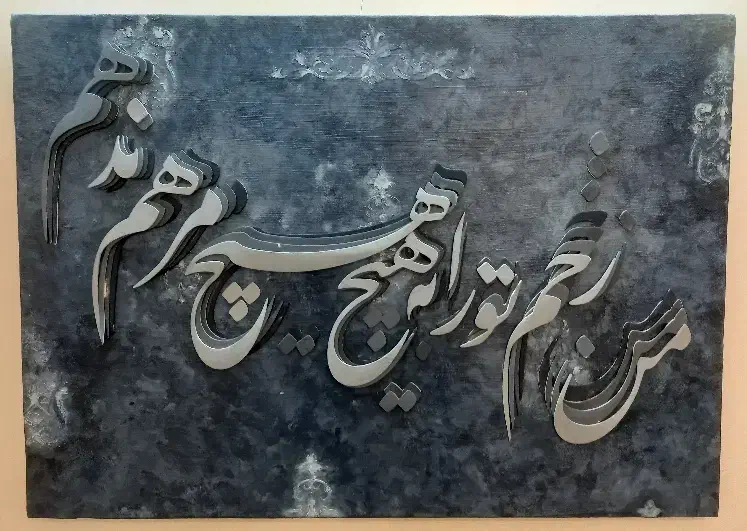 من زخم تو را به هیچ هیچ مرهم ندهم